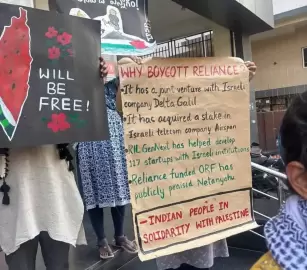 WILL
BE
FREE!
WHY BOYCOTT RELIANCE?
• It has a joint venture with Israeli
company Delta Galil
• It has acquired a stake in
Israeli telecom company Airspan
• RIL GenNext has helped develop
117 startups with Israeli institutions
• Reliance funded ORF has
publicly praised Netanyahu
- INDIAN PEOPLE IN
SOLIDARITY WITH PALESTINE